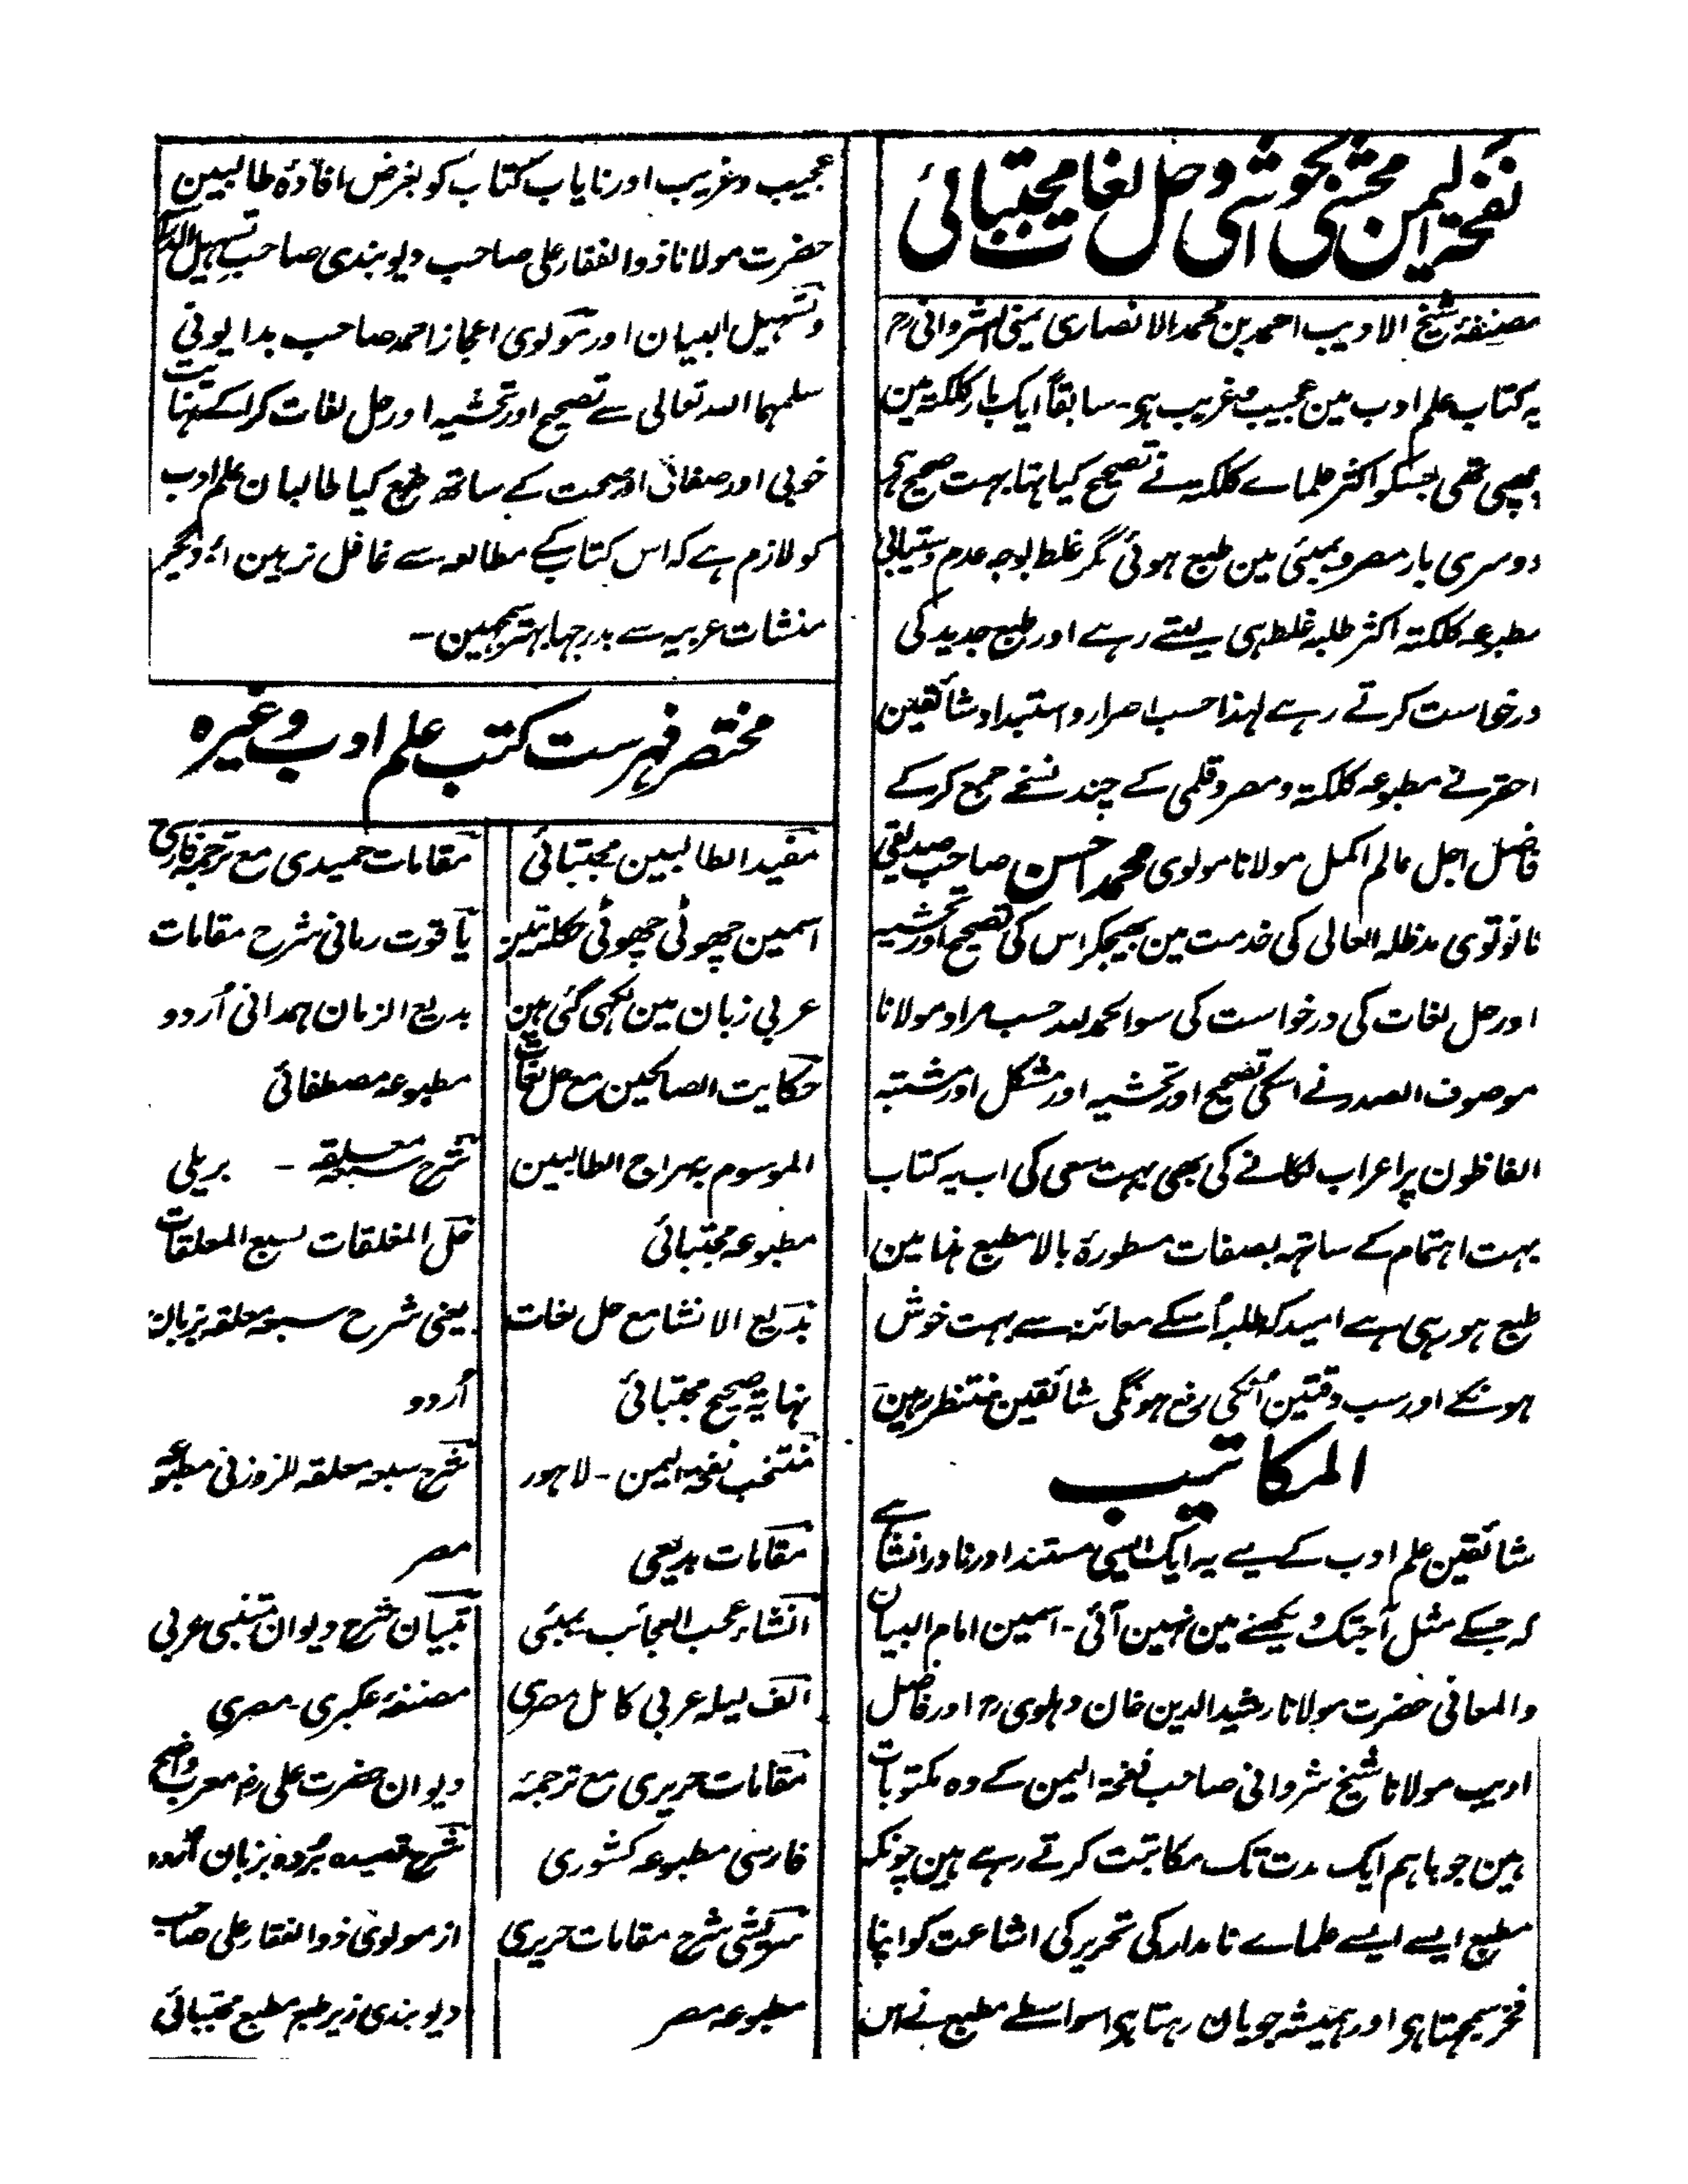 نفحۃ الیمن محشی بحواشی وحل لغات مجتبائی
مصنفۂ شیخ الادیب احمد بن محمد الانصاری یمنی الشروانی رح
یہ کتاب علم ادب مین عجیب و غریب ہی۔ سابقاً ایک بار کلکتہ مین
چھپی تھی جسکو اکثر علماے کلکتہ نے تصحیح کیا تہا بہت صحیح ہی
دوسری بار مصر و بمبئی مین طبع ہوئی مگر غلط بوجہ عدم دستیابی
مطبوعہ کلکتہ اکثر طلبہ غلط ہی لیتے رہے اور طبع جدید کی
درخواست کرتے رہے لہذا حسب اصرار و استبداد شائقین
احقر نے مطبوعہ کلکتہ و مصر و قلمی کے چند نسخے جمع کرکے
فاضل اجل عالم اکمل مولانا مولوی محمد احسن صاحب صدیقی
نانوتوی مدظلہ العالی کی خدمت مین بھیجکر اس کی تصحیح اور تحشیہ
اور حل لغات کی درخواست کی سو الحمد للہ حسب مراد مولانا
موصوف الصدر نے اسکی تصحیح اور تحشیہ اور مشکل اور مشتبہ
الفاظون پر اعراب لگانے کی بھی بہت سعی کی اب یہ کتاب
بہت اہتمام کے ساتہہ بصفات مسطورۂ بالا مطبع ہذا مین
طبع ہو رہی ہے امید کہ طلبہ اسکے معائنہ سے بہت خوش
ہونگے اور سب دقتین اُنکی رفع ہونگی شائقین منتظر رہین
المکاتیب
شائقین علم ادب کے لیے یہ ایک ایسی مستند اور نادر انشا ہے
کہ جسکے مثل آجتک دیکھنے مین نہین آئی۔ اسمین امام البیان
والمعانی حضرت مولانا رشید الدین خان دہلوی رح اور فاضل
ادیب مولانا شیخ شروانی صاحب نفحۃ الیمن کے وہ مکتوبات
ہین جو باہم ایک مدت تک مکاتبت کرتے رہے ہین چونکہ
مطبع ایسے ایسے علماے نامدار کی تحریر کی اشاعت کو اپنا
فخر سمجہتا ہی اور ہمیشہ جویان رہتا ہی اسواسطے مطبع نے اس
عجیب و غریب اور نایاب کتاب کو بغرض افادۂ طالبین
حضرت مولانا ذوالفقار علی صاحب دیوبندی صاحب تسہیل
و تسہیل البیان اور مولوی اعجاز احمد صاحب بدایونی
سلمہما اللہ تعالی سے تصحیح اور تحشیہ اور حل لغات کراکے نہایت
خوبی اور صفائی اور صحت کے ساتھ طبع کیا طالبان علم ادب
کو لازم ہے کہ اس کتاب کے مطالعہ سے غافل نرہین اور دیگر
منشات عربیہ سے بدرجہا بہتر سمجہین۔
مختصر فہرست کتب علم ادب وغیرہ
مفید الطالبین مجتبائی
اسمین چھوٹی چھوٹی حکایتین
عربی زبان مین لکھی گئی ہین
حکایت الصالحین مع حل لغات
الموسوم بہ سراج الطالبین
مطبوعہ مجتبائی
بدیع الانشا مع حل لغات
نہایۃ صحیح مجتبائی
منتخب نفحۃ الیمن۔ لاہور
مقامات بدیعی
انشاء عجب العجائب بمبئی
الف لیلہ عربی کامل مصری
مقامات حریری مع ترجمۂ
فارسی مطبوعہ کشوری
شریشی شرح مقامات حریری
مطبوعہ مصر
مقامات حمیدی مع ترجمہ فارسی
یاقوت رمانی شرح مقامات
بدیع الزمان ہمدانی اُردو
مطبوعہ مصطفائی
شرح سبعہ معلقہ – بریلی
حل المغلقات لسبع المعلقات
یعنی شرح سبعہ معلقہ بزبان
اُردو
شرح سبعہ معلقہ للزوزنی مطبوعہ
مصر
تبیان شرح دیوان متنبی عربی
مصنفہ عکبری۔ مصری
دیوان حضرت علی رض معرب واضح
شرح قصیدہ بُردہ بزبان اُردو
از مولوی ذوالفقار علی صاحب
دیوبندی زیر طبع مطبع مجتبائی